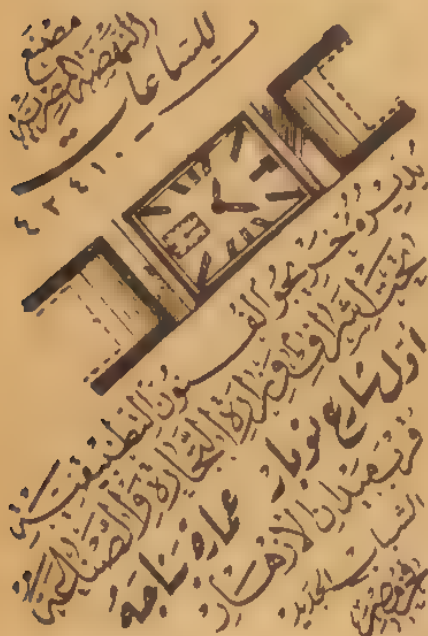 مصنع
النهضة المصرية
للساعات
ت ٤٢٤١٠
يديره خريجو الفنون التطبيقية
تحت إشراف وزارة التجارة والصناعة
أول شارع نوبار عمارة نامة
قرب ميدان الأزهار
الشباب الجديد